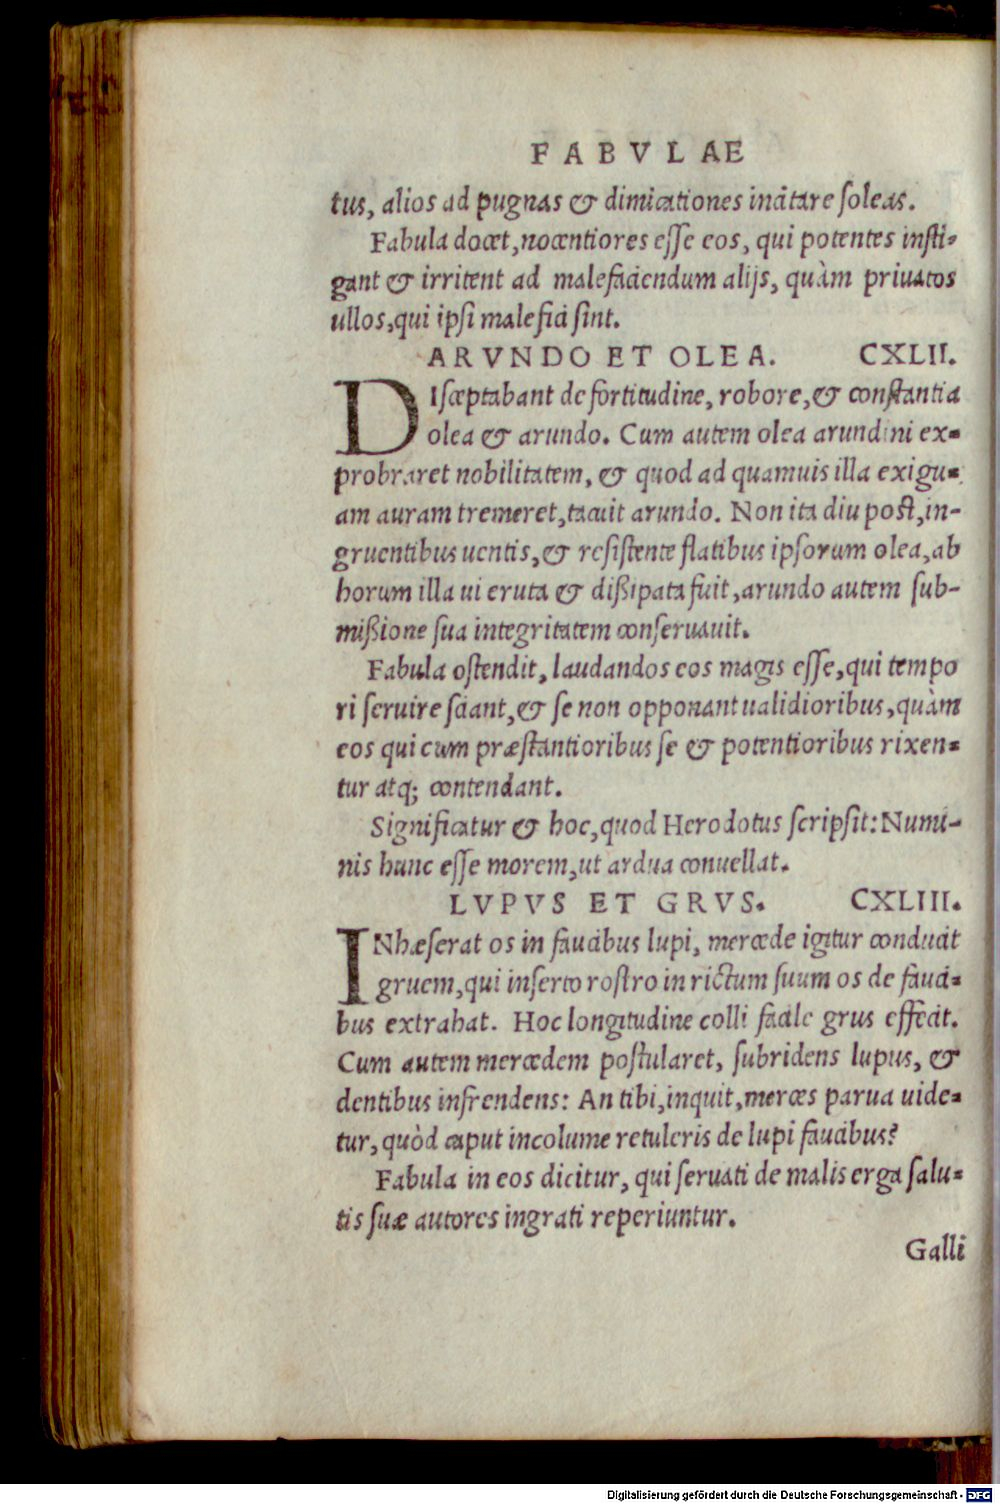 FABVLAE
tus, alios ad pugnas & dimicationes incitare soleas.
Fabula docet, nocentiores esse eos, qui potentes insti-
gant & irritent ad malefaciendum alijs, quàm priuatos
ullos, qui ipsi malefici sint.
ARVNDO ET OLEA. CXLII.
DIsceptabant de fortitudine, robore, & constantia
olea & arundo. Cum autem olea arundini ex-
probraret nobilitatem, & quod ad quamuis illa exigu-
am auram tremeret, tacuit arundo. Non ita diu post, in-
gruentibus uentis, & resistente flatibus ipsorum olea, ab
horum illa ui eruta & dißipata fuit, arundo autem sub-
mißione sua integritatem conseruauit.
Fabula ostendit, laudandos eos magis esse, qui tempo
ri seruire sciant, & se non opponant ualidioribus, quàm
eos qui cum præstantioribus se & potentioribus rixen-
tur atq; contendant.
Significatur & hoc, quod Herodotus scripsit: Numi-
nis hunc esse morem, ut ardua conuellat.
LVPVS ET GRVS. CXLIII.
INhæserat os in faucibus lupi, mercede igitur conducit
gruem, qui inserto rostro in rictum suum os de fauci-
bus extrahat. Hoc longitudine colli facile grus effecit.
Cum autem mercedem postularet, subridens lupus, &
dentibus infrendens: An tibi, inquit, merces parua uide-
tur, quòd caput incolume retuleris de lupi faucibus?
Fabula in eos dicitur, qui seruati de malis erga salu-
tis suæ autores ingrati reperiuntur.
Galli
Digitalisierung gefördert durch die Deutsche Forschungsgemeinschaft - DFG